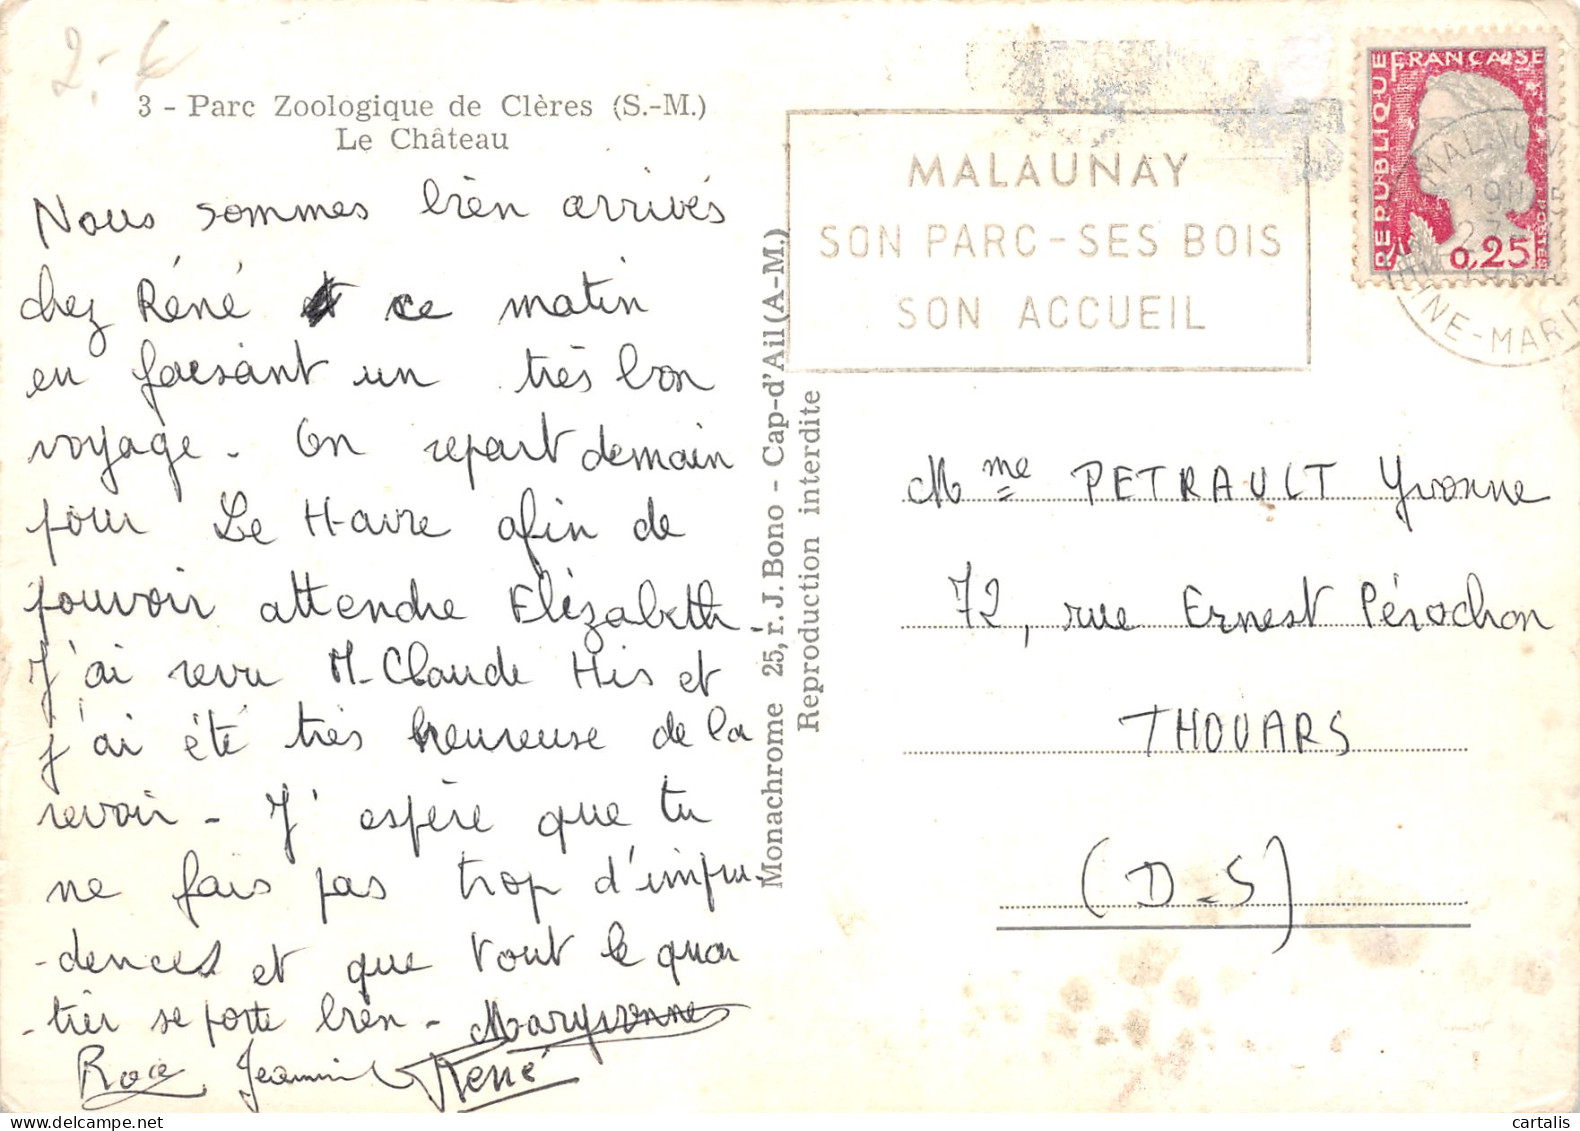 2.-6
3 - Parc Zoologique de Clères (S.-M.)
Le Château
Nous sommes bien arrivés
chez Réné ce matin
en faisant un très bon
voyage - On repart demain
pour Le Havre afin de
pouvoir attendre Elizabeth -
J'ai revu M-Claude His et
j'ai été très heureuse de la
revoir - J'espère que tu
ne fais pas trop d'impru-
-dences et que tout le quar
-tier se porte bien - Maryvonne
Jeannine René
Monachrome 25, r. J. Bono - Cap-d'Ail (A-M.)
Reproduction interdite
MALAUNAY
SON PARC - SES BOIS
SON ACCUEIL
REPUBLIQUE FRANÇAISE
POSTES
0,25
MALAUNAY
19H
INE-MARIT
Mme PETRAULT Yvonne
72, rue Ernest Pérochon
THOUARS
(D-S)
cartalis